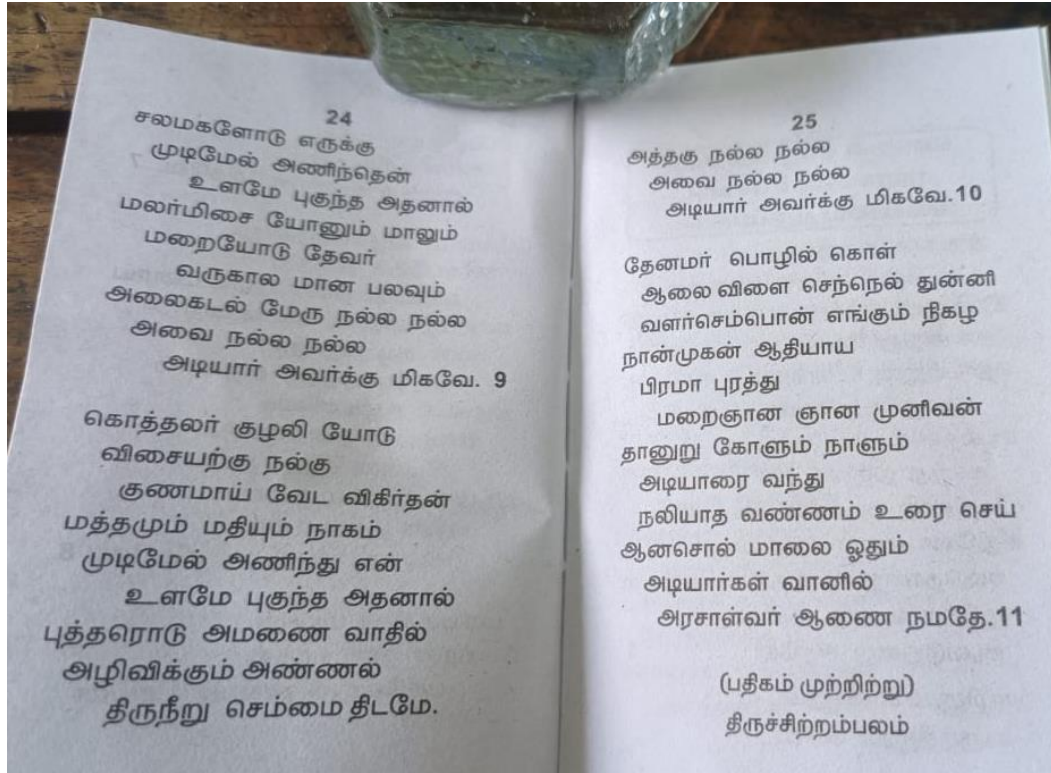 24
சலமகளோடு எருக்கு
முடிமேல் அணிந்தென்
உளமே புகுந்த அதனால்
மலர்மிசை யோனும் மாலும்
மறையோடு தேவர்
வருகால மான பலவும்
அலைகடல் மேரு நல்ல நல்ல
அவை நல்ல நல்ல
அடியார் அவர்க்கு மிகவே. 9
கொத்தலர் குழலி யோடு
விசையற்கு நல்கு
குணமாய் வேட விகிர்தன்
மத்தமும் மதியும் நாகம்
முடிமேல் அணிந்து என்
உளமே புகுந்த அதனால்
புத்தரொடு அமணை வாதில்
அழிவிக்கும் அண்ணல்
திருநீறு செம்மை திடமே.
25
அத்தகு நல்ல நல்ல
அவை நல்ல நல்ல
அடியார் அவர்க்கு மிகவே.10
தேனமர் பொழில் கொள்
ஆலை விளை செந்நெல் துன்னி
வளர்செம்பொன் எங்கும் நிகழ
நான்முகன் ஆதியாய
பிரமா புரத்து
மறைஞான ஞான முனிவன்
தானுறு கோளும் நாளும்
அடியாரை வந்து
நலியாத வண்ணம் உரை செய்
ஆனசொல் மாலை ஓதும்
அடியார்கள் வானில்
அரசாள்வர் ஆணை நமதே.11
(பதிகம் முற்றிற்று)
திருச்சிற்றம்பலம்